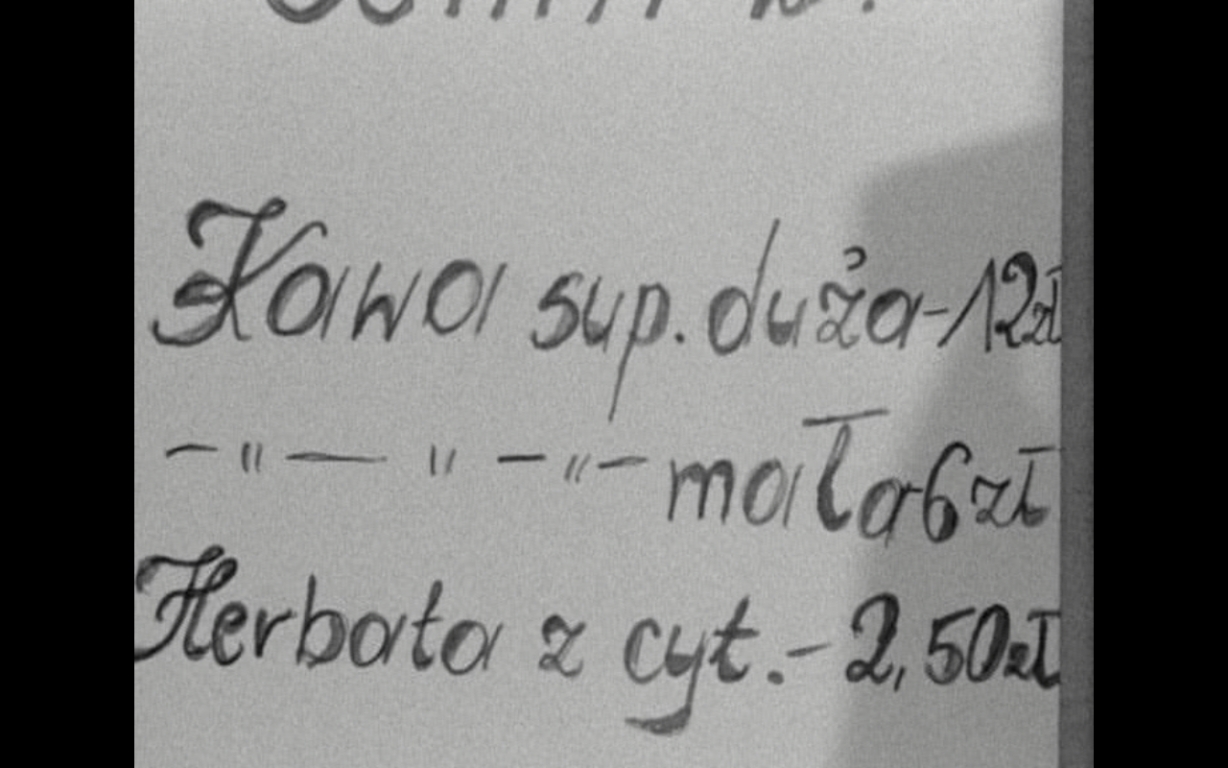 Kawa sup. duża - 12 zł
-"- " -"- mała 6 zł
Herbata z cyt. - 2,50 zł